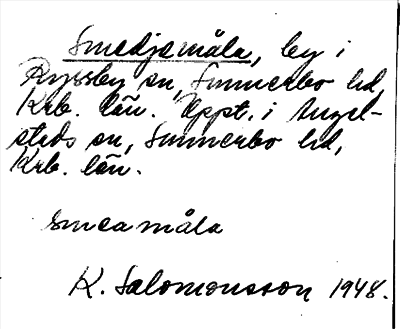 Smedjemåla, by i
Ryssby sn, Sunnerbo hd,
Krb. län. Uppt. i Angel-
stads sn, Sunnerbo hd,
Krb. län.
smeamåla
K. Salomonsson 1948.